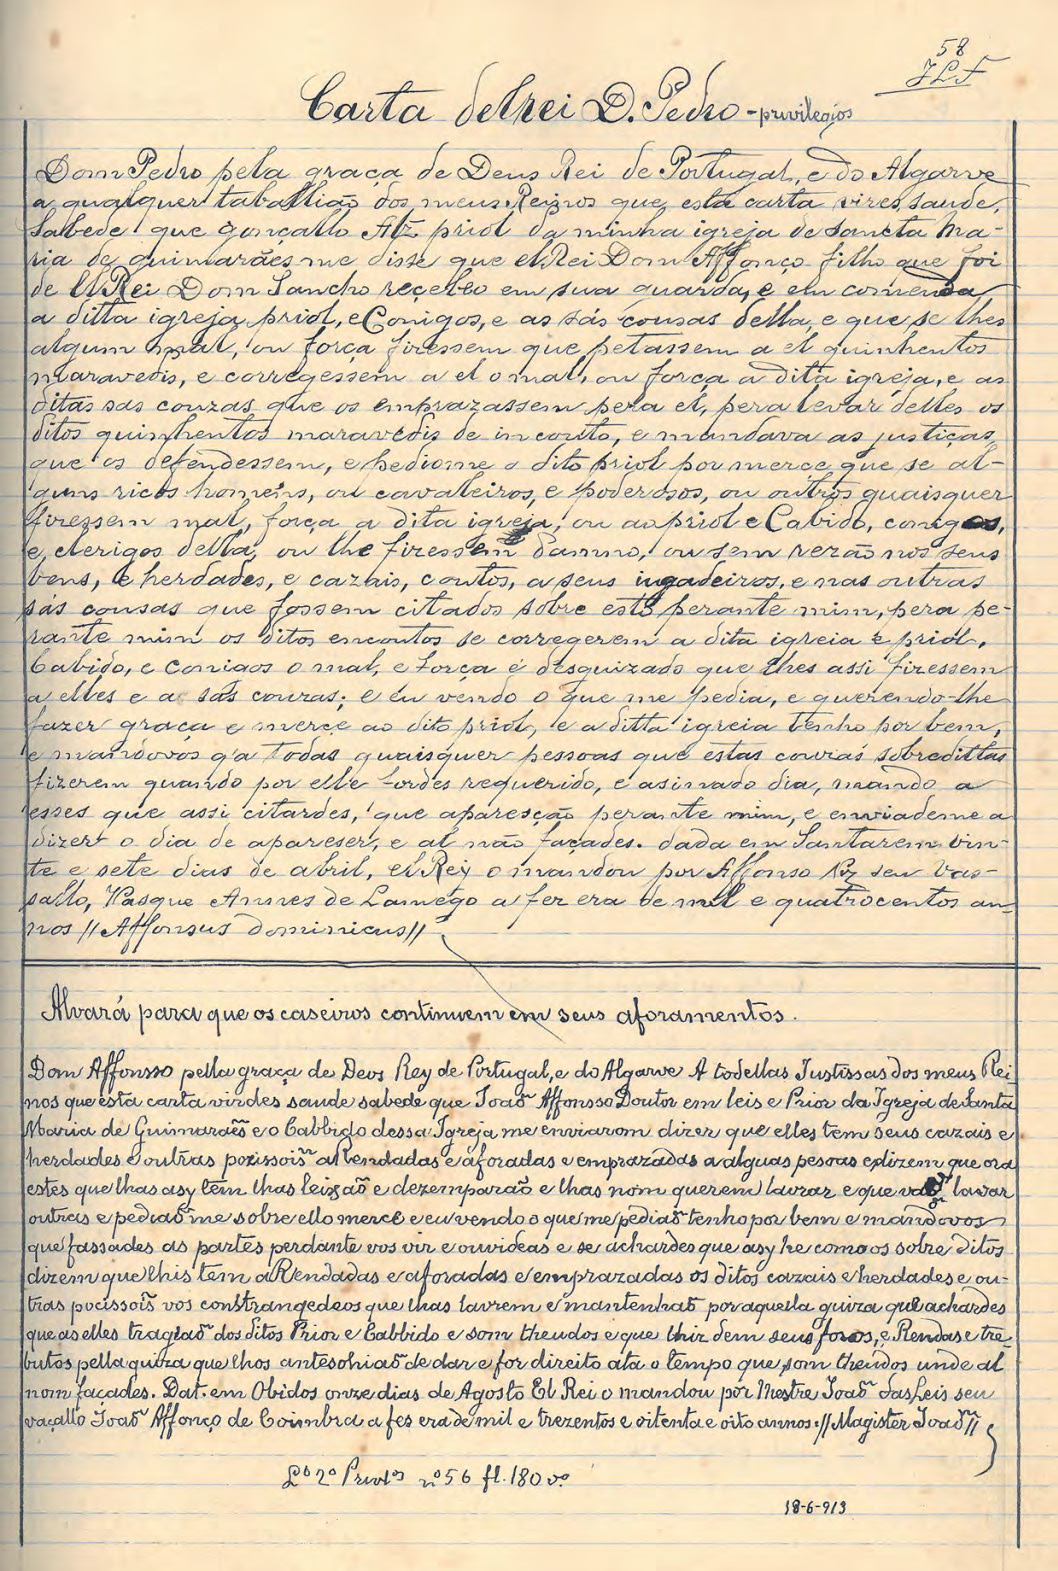 58
JLF
Carta delrei D. Pedro - privilegios
Dom Pedro pela graça de Deus Rei de Portugal, e do Algarve
a qualquer taballião dos meus Reinos que esta carta vires saude,
sabede que gonçallo Alz priol da minha igreja de sancta Ma-
ria de guimarães me disse que el Rei Dom Affonço filho que foi
de El Rei Dom Sancho reçebeo em sua guarda, e em comenda
a ditta igreja, priol, e Conigos, e as sás cousas della, e que se lhes
algum mal, ou força fizessem que petassem a el quinhentos
maravedis, e corregessem a el o mal, ou força a dita igreja, e as
ditas sas couzas, que os emprazassem pera el, pera levar delles os
ditos quinhentos maravedis de incouto, e mandava as justiças,
que os defendessem, e pediome o dito priol por merce que se al-
guns ricos homens, ou cavaleiros, e poderosos, ou outros quaisquer
fizessem mal, força a dita igreja, ou ao priol e Cabido, conigos,
e, clerigos della, ou lhe fizessem damno, ou sem rezão nos seus
bens, e herdades, e cazais, coutos, a seus, e nas outras
sás cousas que fossem citados sobre esto perante mim, pera pe-
rante mim os ditos encoutos se corregerem a dita igreia e priol,
Cabido, e conigos o mal, e força e desguizado que lhes assi fizessem
a elles e as sás couzas; e eu vendo o que me pedia, e querendo-lhe
fazer graça e merçe ao dito priol, e a ditta igreia tenho por bem,
e mandovos q'a todas quaisquer pessoas que estas couzas sobredittas
fizerem quando por elle fordes requerido, e asinado dia, mando a
esses que assi citardes, que apareseção perante mim, e enviademe a
dizer o dia de apareser, e al não façades. dada em Santarem vin-
te e sete dias de abril, el Rey o mandou por Affonso Dĩz seu Vas-
sallo, Vasque Annes de Lamego a fez era de mil e quatrocentos an-
nos // Affonsus dominicus //
Alvará para que os caseiros continuem em seus aforamentos.
Dom Affonsso pella graça de Deos Rey de Portugal, e do Algarve A todellas Justissas dos meus Rei
nos que esta carta virdes saude sabede que Joaõ Affonsso Doutor em leis e Prior da Igreja de Santa
Maria de Guimaraẽs e o Cabbido dessa Igreja me enviarom dizer que elles tem seus cazais e
herdades e outras pozissoiñs aRendadas e aforadas e emprazadas a alguas pesoas e dizem que ora
estes que lhas asy tem lhas leixaõ e dezemparaõ e lhas nom querem lavrar e que vaõ lavar
outras e pediaõ me sobre ello mercê e eu vendo o que me pediaõ tenho por bem e mandovos
que fassades as partes perdante vos vir e ouvideas e se achardes que asy he como os sobre ditos
dizem que lhis tem aRendadas e aforadas e emprazadas os ditos cazais e herdades e ou-
tras pocissoiñs vos constrangedeos que lhas lavrem e mantenhaõ por aquella guiza que achardes
que as elles tragiaõ dos ditos Prior e Cabbido e som theudos e que lhiz dem seus foros, e Rendas e tre-
butos pella guiza que lhos antesohiaõ de dar e for direito ata o tempo que som theudos unde al
nom façades. Dat. em Obidos onze dias de Agosto El Rei o mandou por Mestre Joaõ das Leis seu
vaçallo Joaõ Affonço de Coimbra a fes era de mil e trezentos e oitenta e oito annos: // Magister Joaõ //
Lº 2º Privlos nº 56 fl. 180 vº.
18-6-913